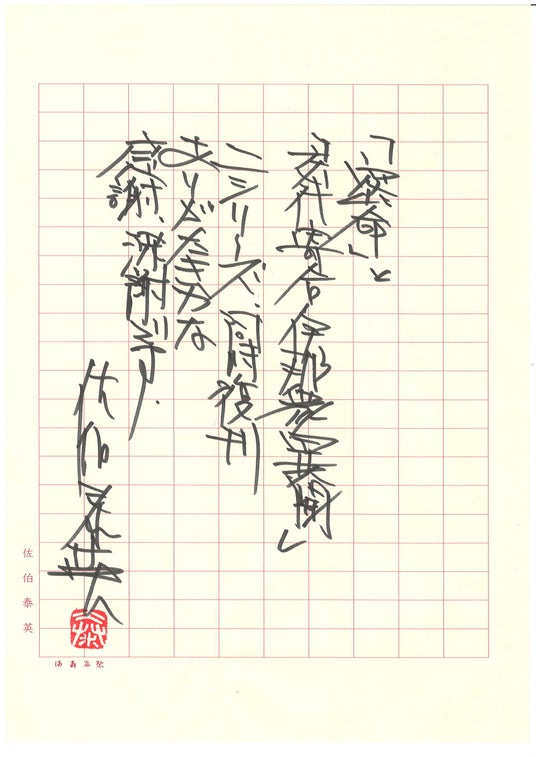 「密命」と
「交代寄合伊那衆異聞」
二シリーズ、同時復刊
ありがたきかな
感謝、深謝です。
佐伯泰英
佐伯泰英